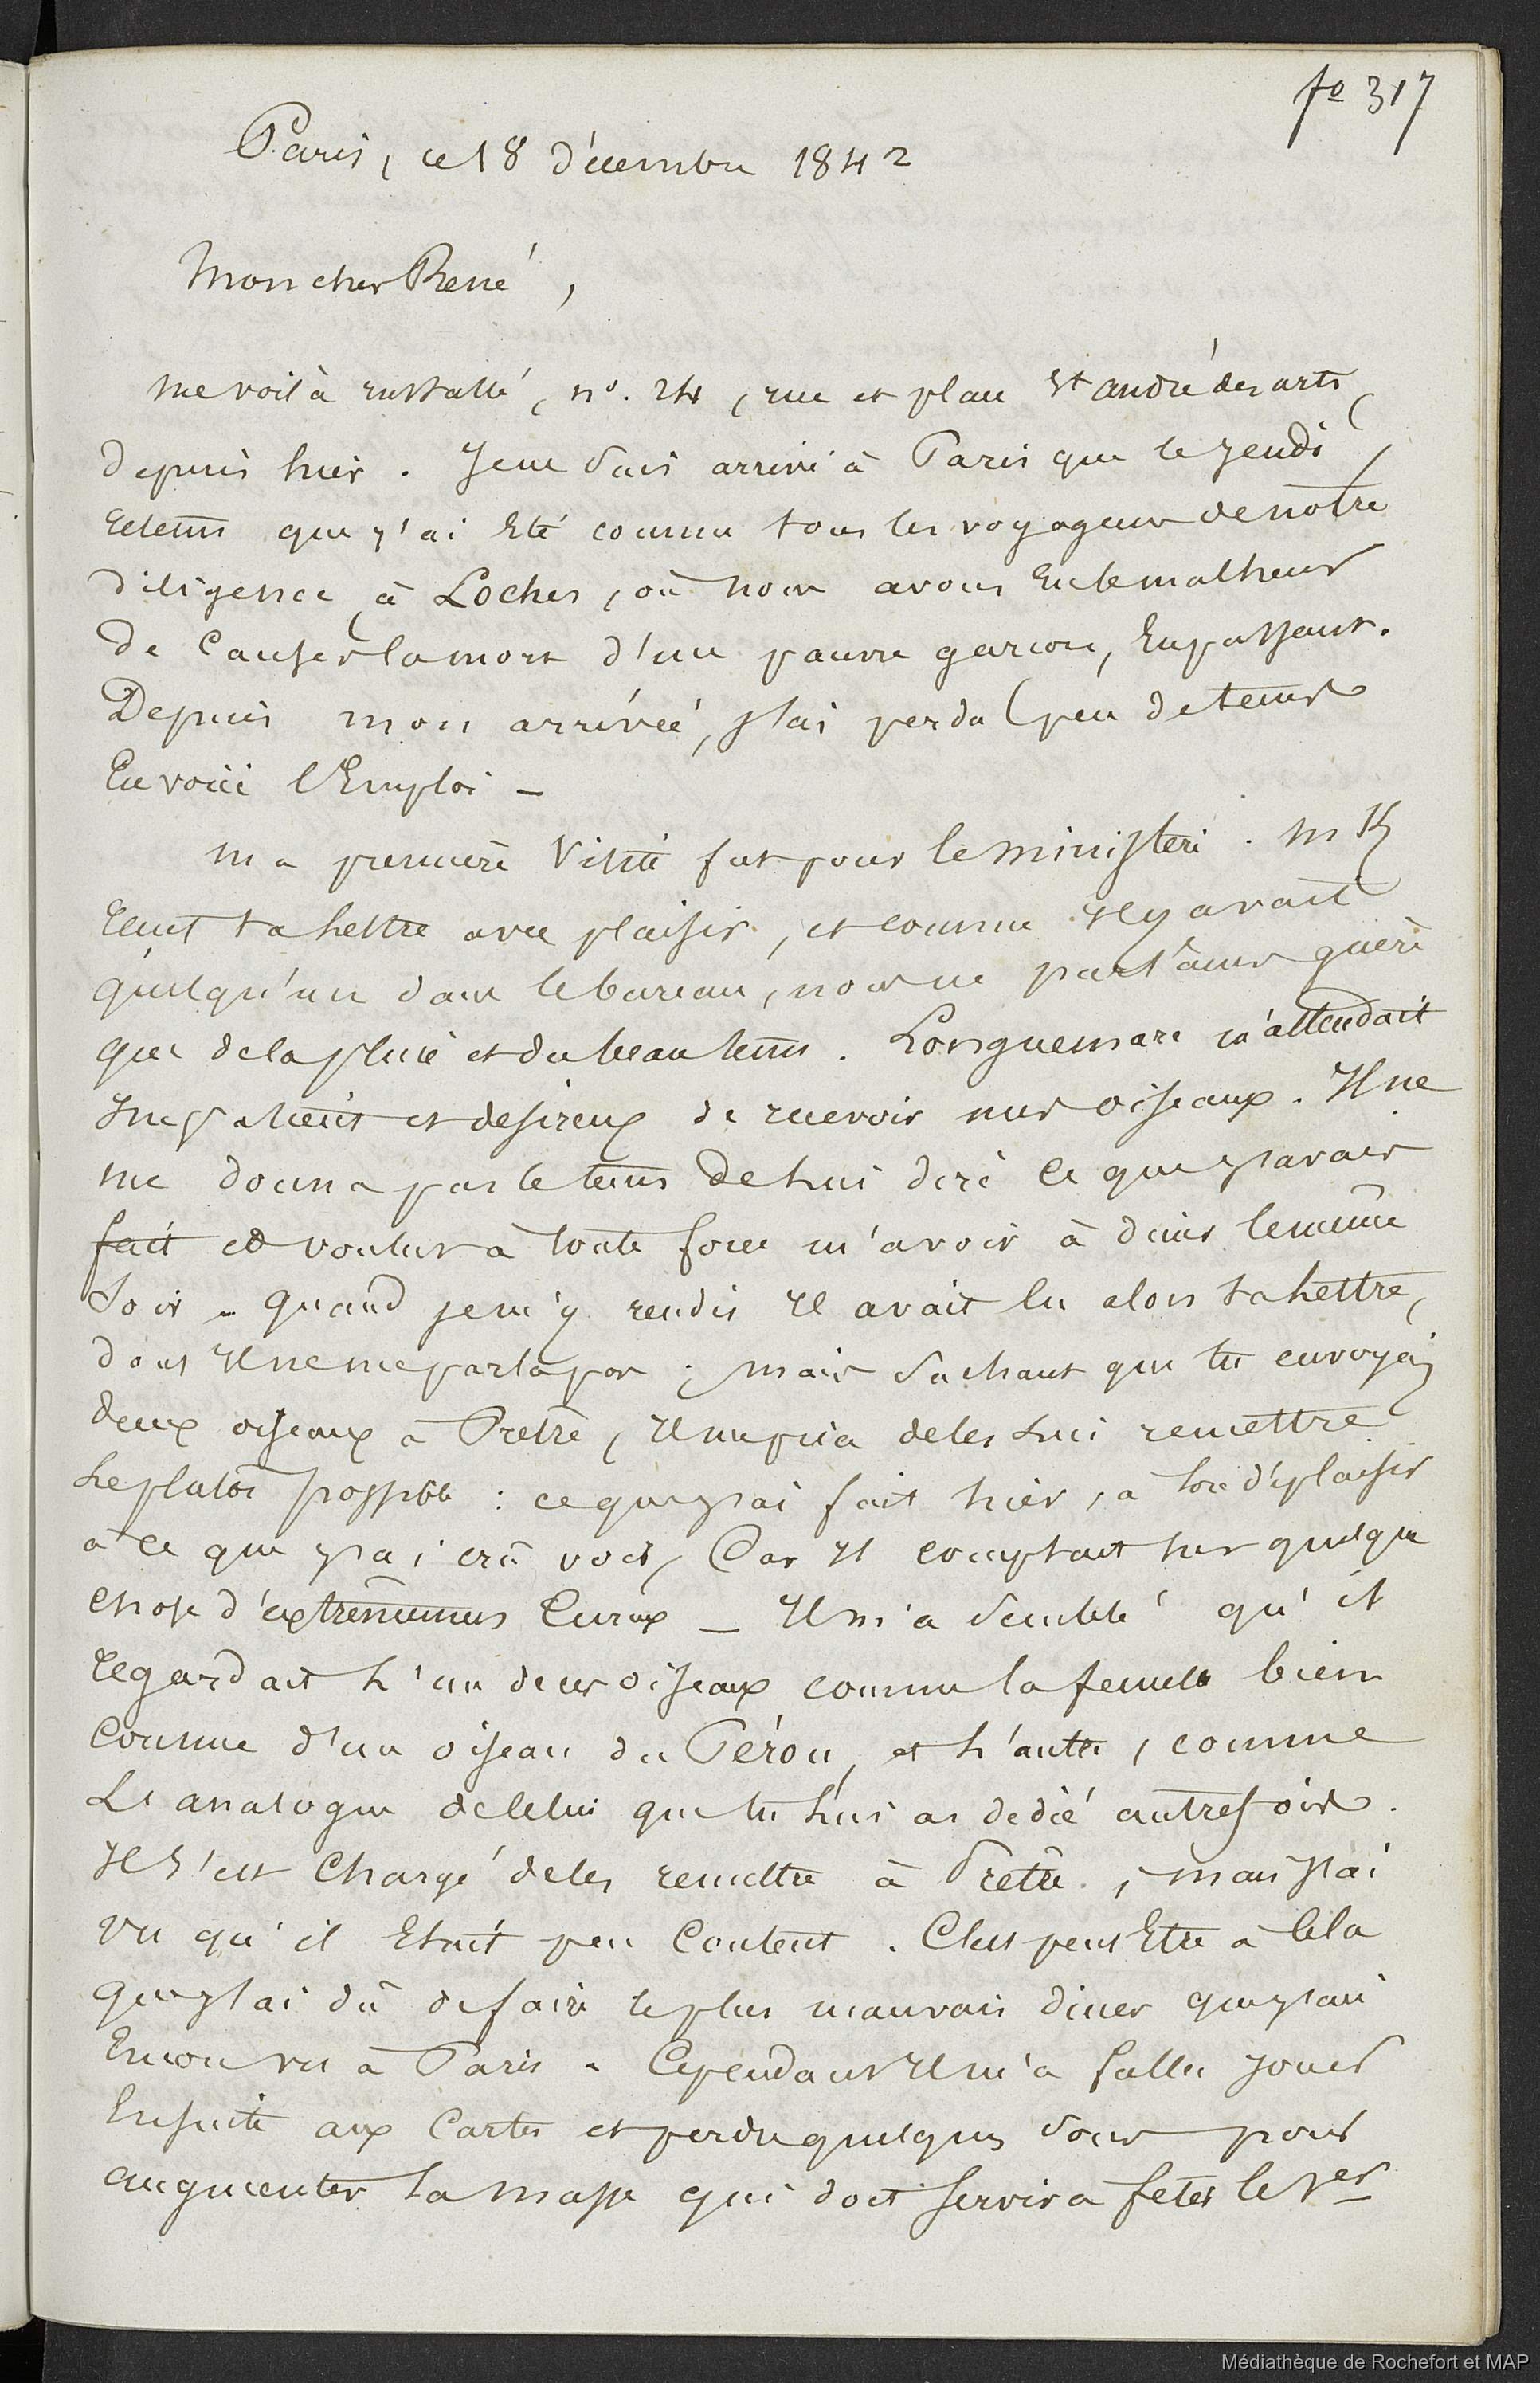 fo 317
Paris, ce 18 décembre 1842
Mon cher René,
me voilà installé, no. 24, rue et place St andré des arts,
depuis hier. Je ne suis arrivé à Paris que le jeudi,
retenu que j'ai été comme tous les voyageurs de notre
diligence, à Loches, où nous avons eu le malheur
de causer la mort d'un pauvre garçon, en passant.
Depuis mon arrivée, j'ai perdu peu de tems
En voici l'Emploi –
ma première visite fut pour le ministère. M K
recut ta lettre avec plaisir, et comme il y avait
quelqu'un dans le bureau, nous ne parlâmes guère
que de la pluie et du beau tems. Longuemare m'attendait
Impatient et desireux de recevoir mes oiseaux. Il ne
me donna pas le tems de lui dire ce que j'avais
fait et voulut à toute force m'avoir à diner le même
soir – quand je m'y rendis il avait lu alors ta lettre,
dont il ne me parla pas ; mais sachant que tu envoyais
deux oiseaux à Prêtre, il me pria de les lui remettre
le plutôt possible : ce que j'ai fait hier, à son déplaisir
à ce que j'ai crû voir, Car il comptait sur quelque
chose d'extrêmement curieux – Il m'a semblé qu'il
regardait l'un de ces oiseaux comme la femelle bien
connue d'un oiseau du Pérou, et l'autre, comme
L'analogue de celui que tu lui as dedié autrefois.
Il s'est chargé de les remettre à Prêtre, mais j'ai
vu qu'il était peu content. C'est peut Etre à cela
que j'ai dû de faire le plus mauvais diner que j'aie
Encore vu à Paris – Cependant il m'a fallu jouer
Ensuite aux Cartes et perdre quelques sous pour
augmenter la masse qui doit servir à fêter le 1er
Médiathèque de Rochefort et MAP